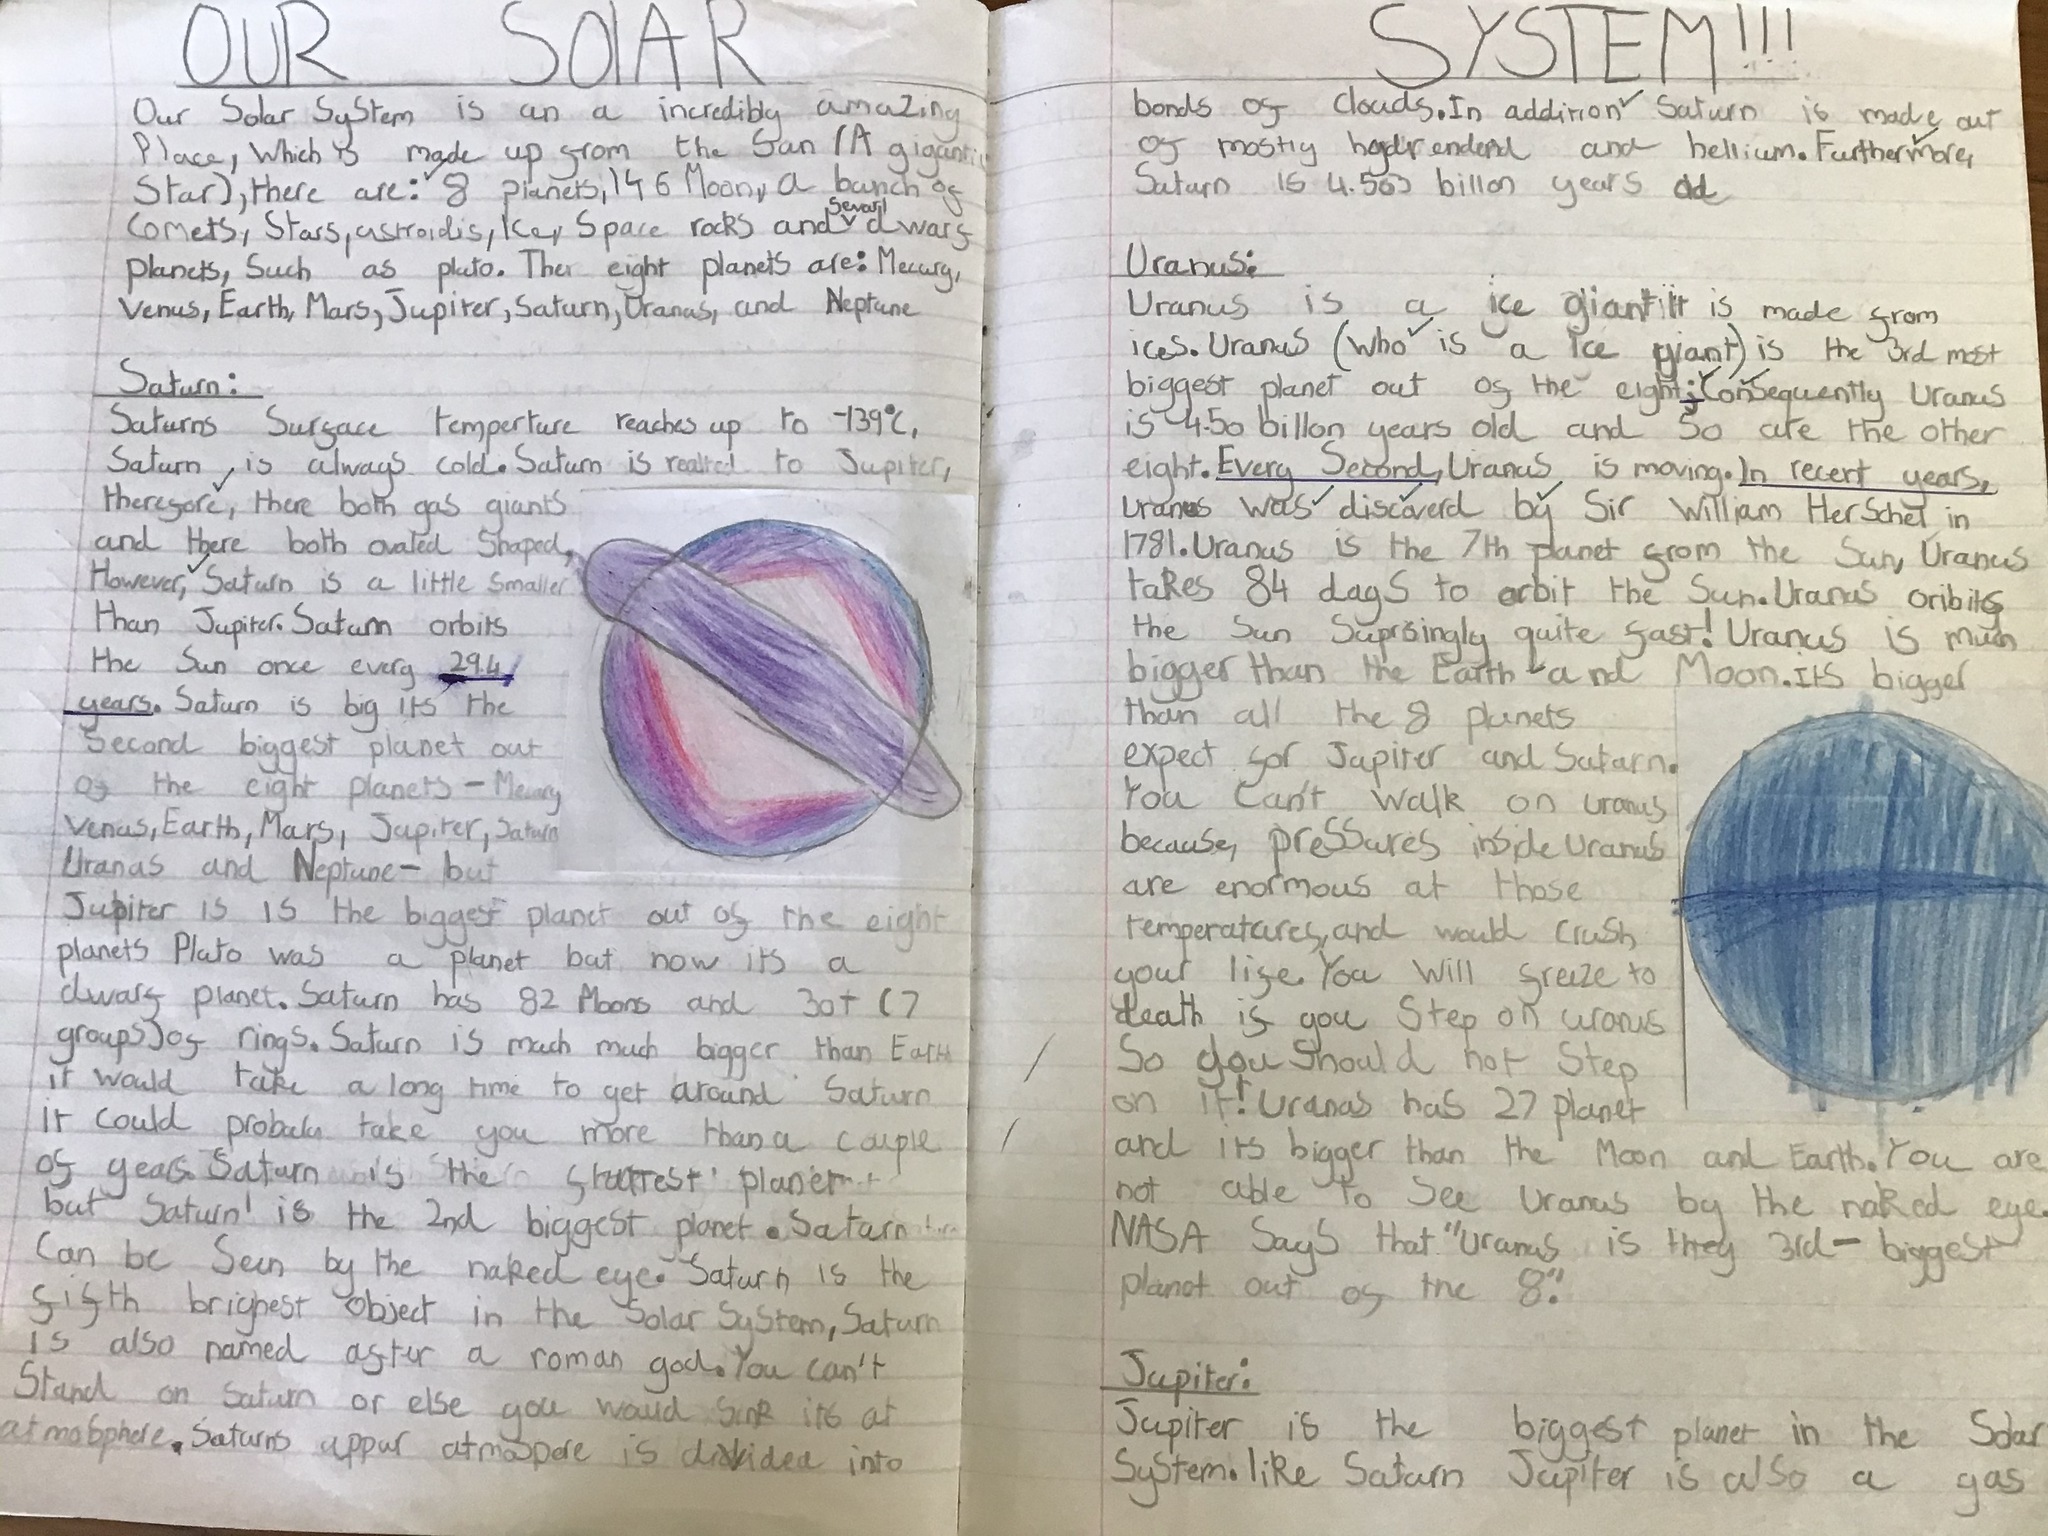 OUR SOlAR SYSTEM!!!
Our Solar System is an a incredibly amazing
Place, Which is made up from the Sun (A gigantic
Star), there are: 8 planets, 146 Moon, a bunch of
Comets, Stars, astroidis, Ice, Space rocks and sevarl dwarf
planets, Such as pluto. Ther eight planets are: Mecury,
Venus, Earth, Mars, Jupiter, Saturn, Uranus, and Neptune
Saturn:
Saturns Surface temperture reaches up to -139°C,
Saturn, is always cold. Saturn is realted to Jupiter,
therefore, there both gas giants
and there both ovaled Shaped,
However, Saturn is a little smaller
Than Jupiter. Saturn orbits
the Sun once every 29.4
years. Saturn is big its the
Second biggest planet out
of the eight planets - Mecury
Venus, Earth, Mars, Jupiter, Saturn
Uranas and Neptune - but
Jupiter is is the biggest planet out of the eight
planets Pluto was a planet but now its a
dwarf planet. Saturn has 82 Moons and 30+ (7
groups) of rings. Saturn is much much bigger than Earth
it would take a long time to get around Saturn
it could probaly take you more than a couple
of years. Saturn is the planet
but Saturn is the 2nd biggest planet. Saturn
Can be Seen by the naked eye. Saturn is the
fifth brighest object in the Solar System, Saturn
is also named after a roman god. You can't
Stand on Saturn or else you would sink its at
atmosphere. Saturns uppur atmospere is divided into
bonds of Clouds. In addition Saturn is made out
of mostly and hellium. Furthermore,
Saturn is 4.503 billon years old
Uranus:
Uranus is a ice giant it is made from
ices. Uranus (who is a Ice giant) is the 3rd most
biggest planet out of the eight; Consequently Uranus
is 4.50 billon years old and so are the other
eight. Every Second, Uranus is moving. In recent years,
Uranus was discoverd by Sir William Herschel in
1781. Uranus is the 7th planet from the Sun, Uranus
takes 84 days to orbit the Sun. Uranus oribits
the Sun Suprsingly quite fast! Uranus is much
bigger than the Earth and Moon. its bigger
than all the 8 planets
expect for Jupiter and Saturn.
You Can't walk on uranus
because, pressures inside Uranus
are enormous at those
temperatures, and would crush
your life. You will freize to
death if you Step on uranus
So you Should not Step
on it! Uranas has 27 planet
and its bigger than the Moon and Earth. You are
not able to See Uranus by the naked eye.
NASA Says that "Uranus is they 3rd - biggest
planet out of the 8."
Jupiter:
Jupiter is the biggest planet in the Solar
System. like Saturn Jupiter is also a gas